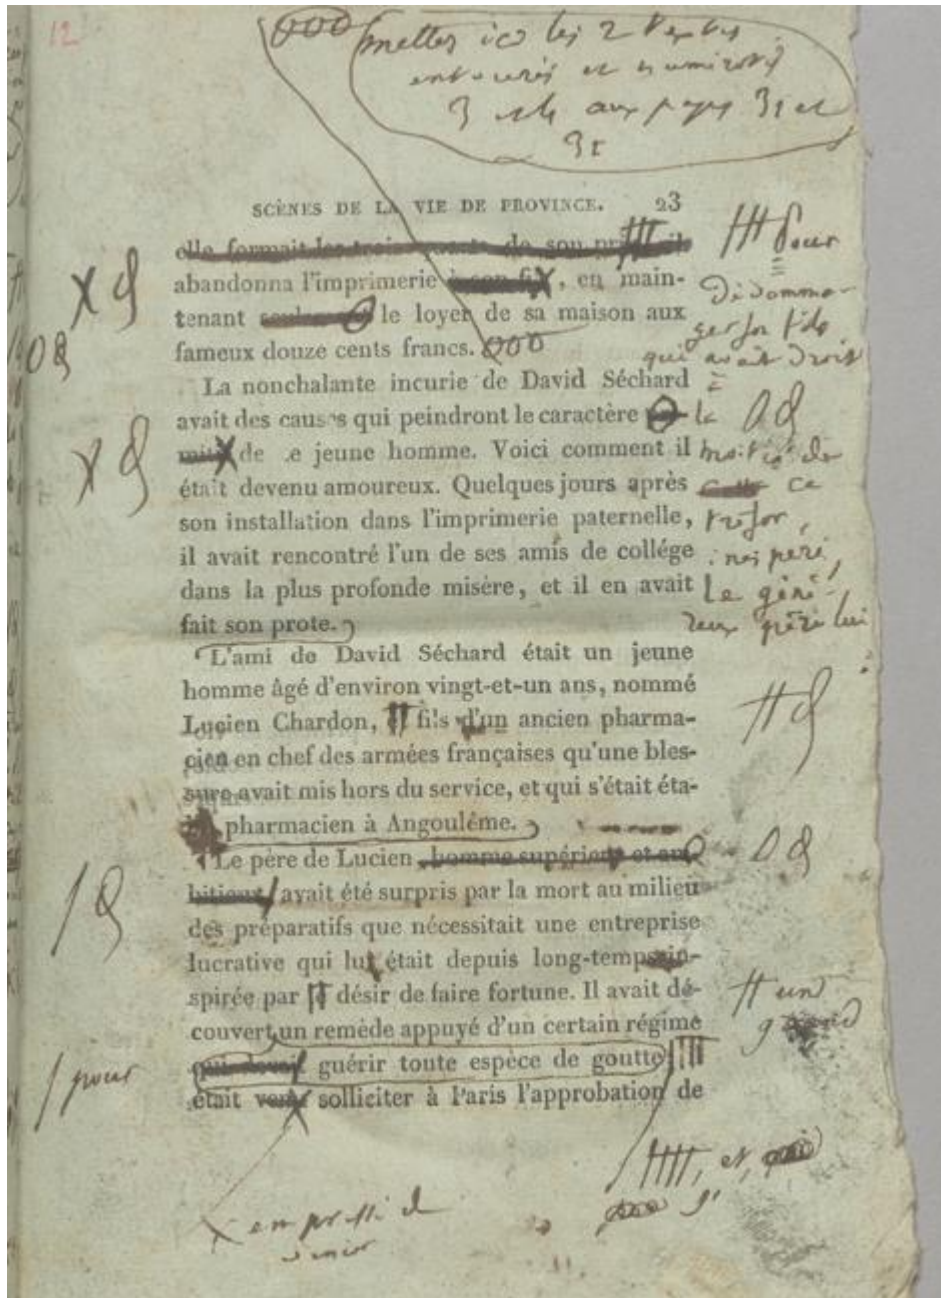 12
000
mettez ici les 2 textes
entourés et numérotés
3 et 4 aux pages 31 et
SCÈNES DE LA VIE DE PROVINCE. 23
elle formait les trois quarts de son
abandonna l'imprimerie à son fils, en main-
tenant le loyer de sa maison aux
fameux douze cents francs. 000
La nonchalante incurie de David Séchard
avait des causes qui peindront le caractère
de ce jeune homme. Voici comment il
était devenu amoureux. Quelques jours après
son installation dans l'imprimerie paternelle,
il avait rencontré l'un de ses amis de collége
dans la plus profonde misère, et il en avait
fait son prote.
L'ami de David Séchard était un jeune
homme âgé d'environ vingt-et-un ans, nommé
Lucien Chardon, fils d'un ancien pharma-
cien en chef des armées françaises qu'une bles-
sure avait mis hors du service, et qui s'était éta-
pharmacien à Angoulême.
Le père de Lucien, homme supérieur et am-
bitieux avait été surpris par la mort au milieu
des préparatifs que nécessitait une entreprise
lucrative qui lui était depuis long-temps in-
spirée par le désir de faire fortune. Il avait dé-
couvert un remède appuyé d'un certain régime
qui devait guérir toute espèce de goutte
était venu solliciter à Paris l'approbation de
pour
dédomma-
ger son fils
qui avait droit
à la
moitié de
ce
trésor,
père,
Le géné-
reux père lui
un
grand
pour
, et